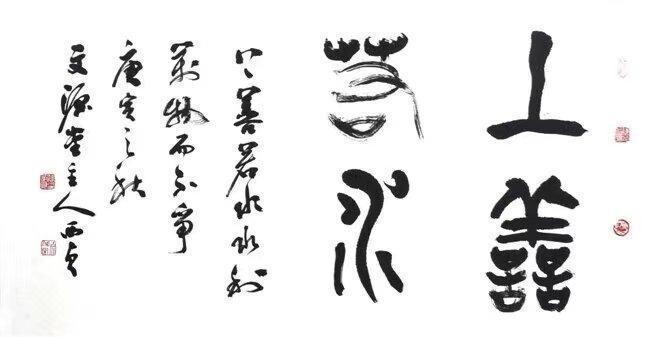 上善
若水
上善若水水利
萬物而不爭
庚寅之秋
堂主人西